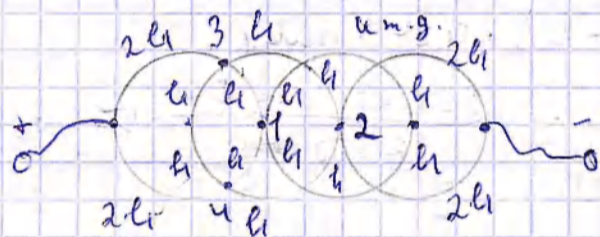 2l₁ 3 l₁ и т.д. 2l₁
l₁ l₁ l₁ l₁ l₁
+ 1 2 -
l₁ l₁ l₁ l₁ l₁
2l₁ 4 l₁ 2l₁